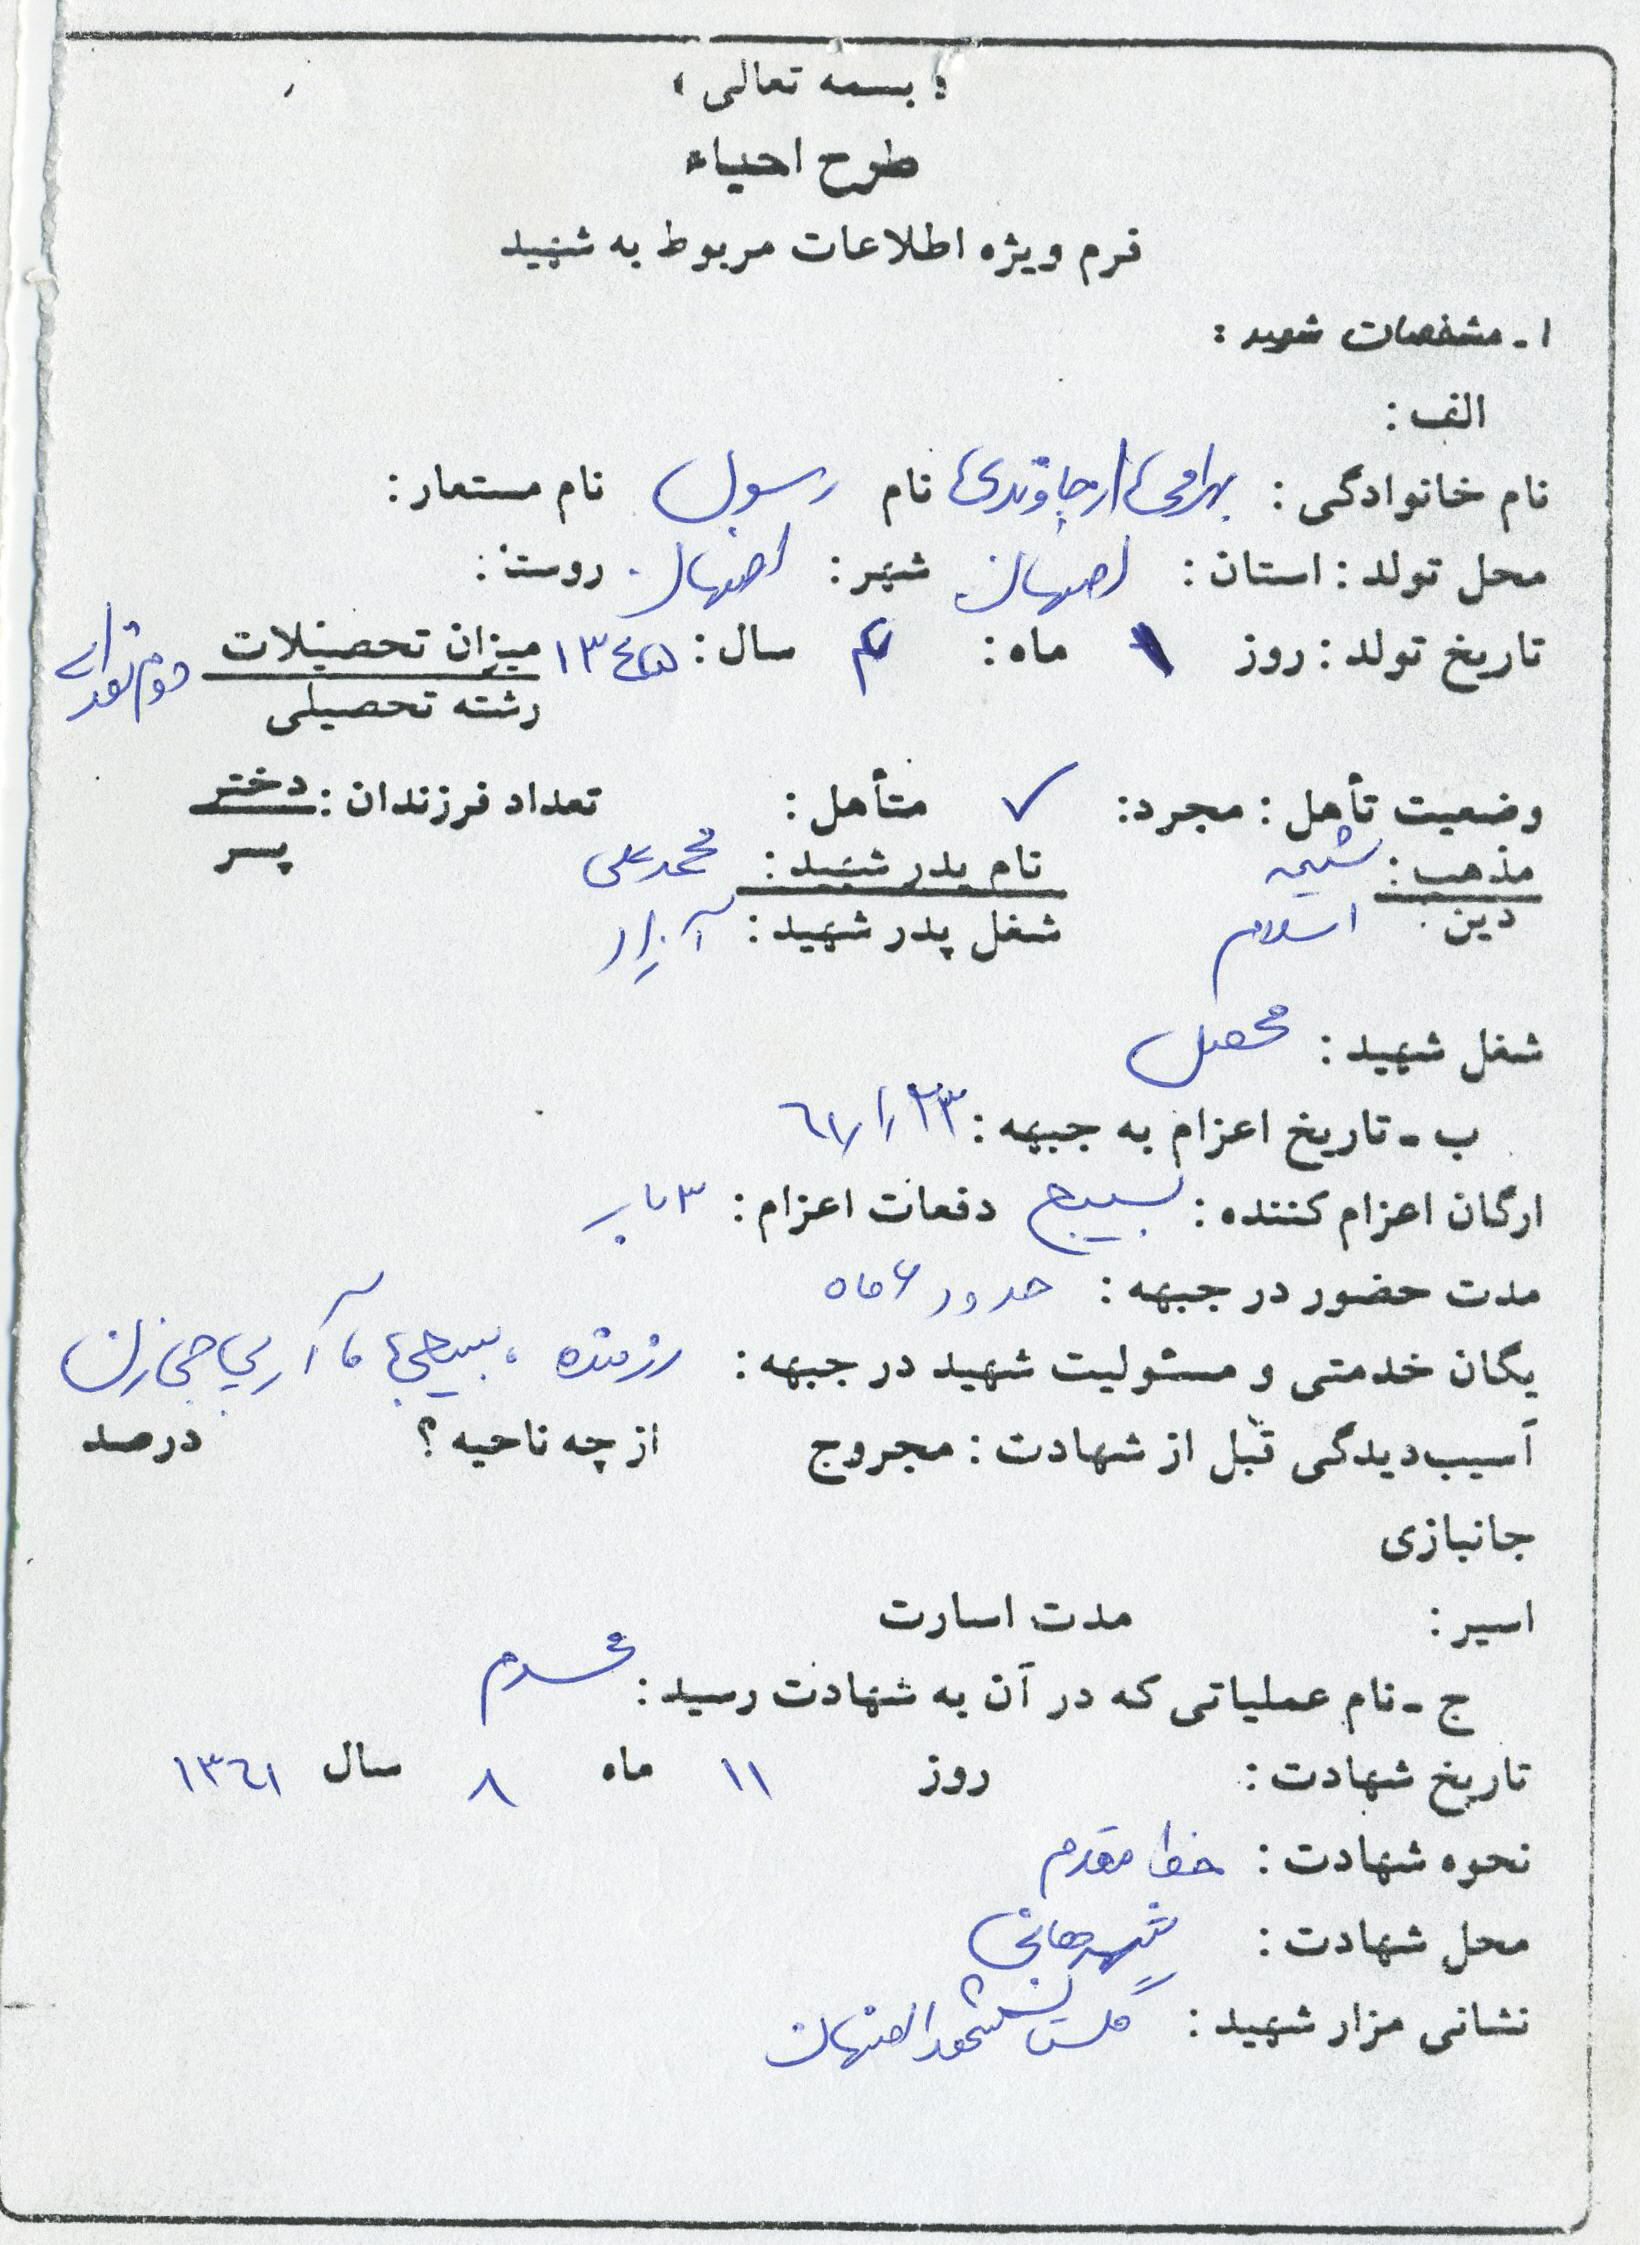 « بسمه تعالی »
طرح احیاء
فرم ویژه اطلاعات مربوط به شهید
۱ - مشخصات شهید :
الف :
نام خانوادگی : بهرامی ارجاوندی نام رسول نام مستعار :
محل تولد : استان : اصفهان شهر : اصفهان روستا :
تاریخ تولد : روز ۱ ماه : ۴ سال : ۱۳۴۵ میزان تحصیلات دوم
رشته تحصیلی
وضعیت تأهل : مجرد : ✓ متأهل : تعداد فرزندان : دختر
پسر
مذهب : شیعه نام پدر شهید : محمدعلی
دین : اسلام شغل پدر شهید :
شغل شهید : محصل
ب - تاریخ اعزام به جبهه :
ارگان اعزام کننده : بسیج دفعات اعزام : ۳ بار
مدت حضور در جبهه : حدود ۶ ماه
یگان خدمتی و مسئولیت شهید در جبهه : رزمنده ، بسیجی ، آرپی جی زن
آسیب‌دیدگی قبل از شهادت : مجروح از چه ناحیه ؟ درصد
جانبازی
اسیر : مدت اسارت
ج - نام عملیاتی که در آن به شهادت رسید : محرم
تاریخ شهادت : روز ۱۱ ماه ۸ سال ۱۳۶۱
نحوه شهادت : خط مقدم
محل شهادت : شرهانی
نشانی مزار شهید : گلستان شهدا اصفهان